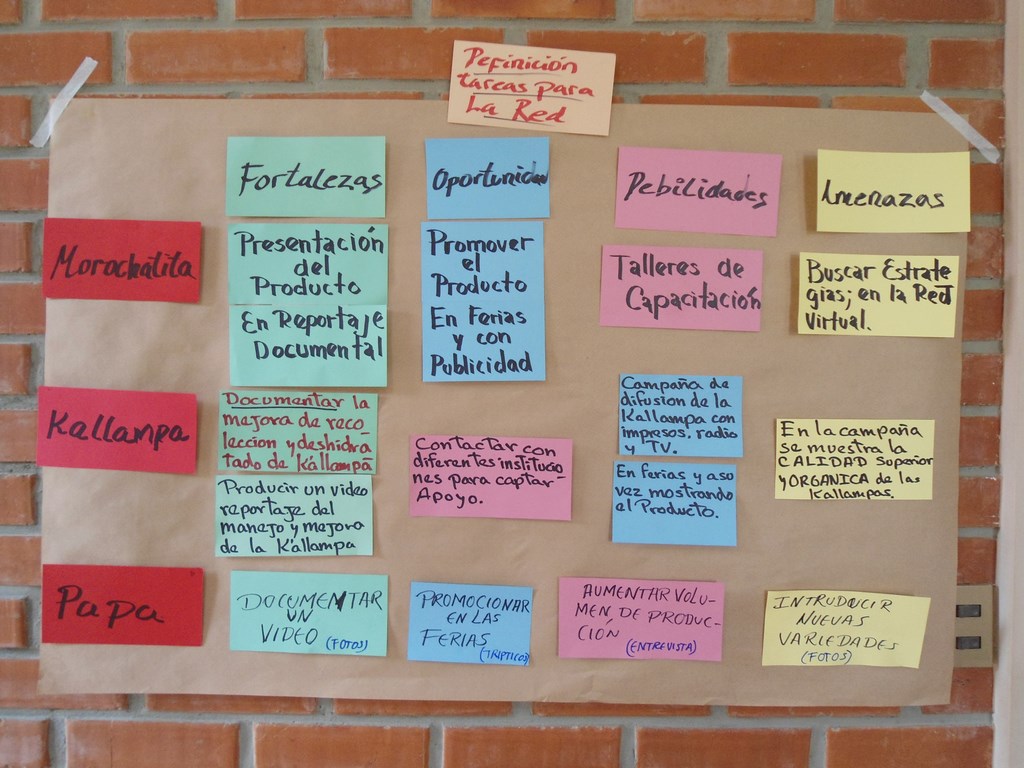 Definición
tareas para
La Red
Fortalezas
Oportunidad
Debilidades
Amenazas
Morochatita
Presentación
del
Producto
En Reportaje
Documental
Promover
el
Producto
En Ferias
y con
Publicidad
Talleres de
Capacitación
Buscar Estrate
gias; en la Red
Virtual.
Kallampa
Documentar la
mejora de reco
leccion y deshidra
tado de Kallampa
Producir un video
reportaje del
manejo y mejora
de la K'allampa
Contactar con
diferentes institucio
nes para captar-
Apoyo.
Campaña de
difusion de la
Kallampa con
impresos, radio
y TV.
En ferias y asu
vez mostrando
el Producto.
En la campaña
se muestra la
CALIDAD superior
y ORGANICA de las
Kallampas.
Papa
DOCUMENTAR
UN
VIDEO (FOTOS)
PROMOCIONAR
EN LAS
FERIAS
(TRIPTICOS)
AUMENTAR VOLU-
MEN DE PRODUC-
CIÓN
(ENTREVISTA)
INTRUDUCIR
NUEVAS
VARIEDADES
(FOTOS)